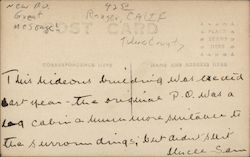 NEW P.O.
Great
message!
43 50
Rough, CALIF
POST CARD
PLACE
STAMP
HERE
CORRESPONDENCE HERE
NAME AND ADDRESS HERE
This hideous building was erected
last year - the original P.O. was a
log cabin & much more suitable to
the surroundings, but didn't suit
Uncle Sam